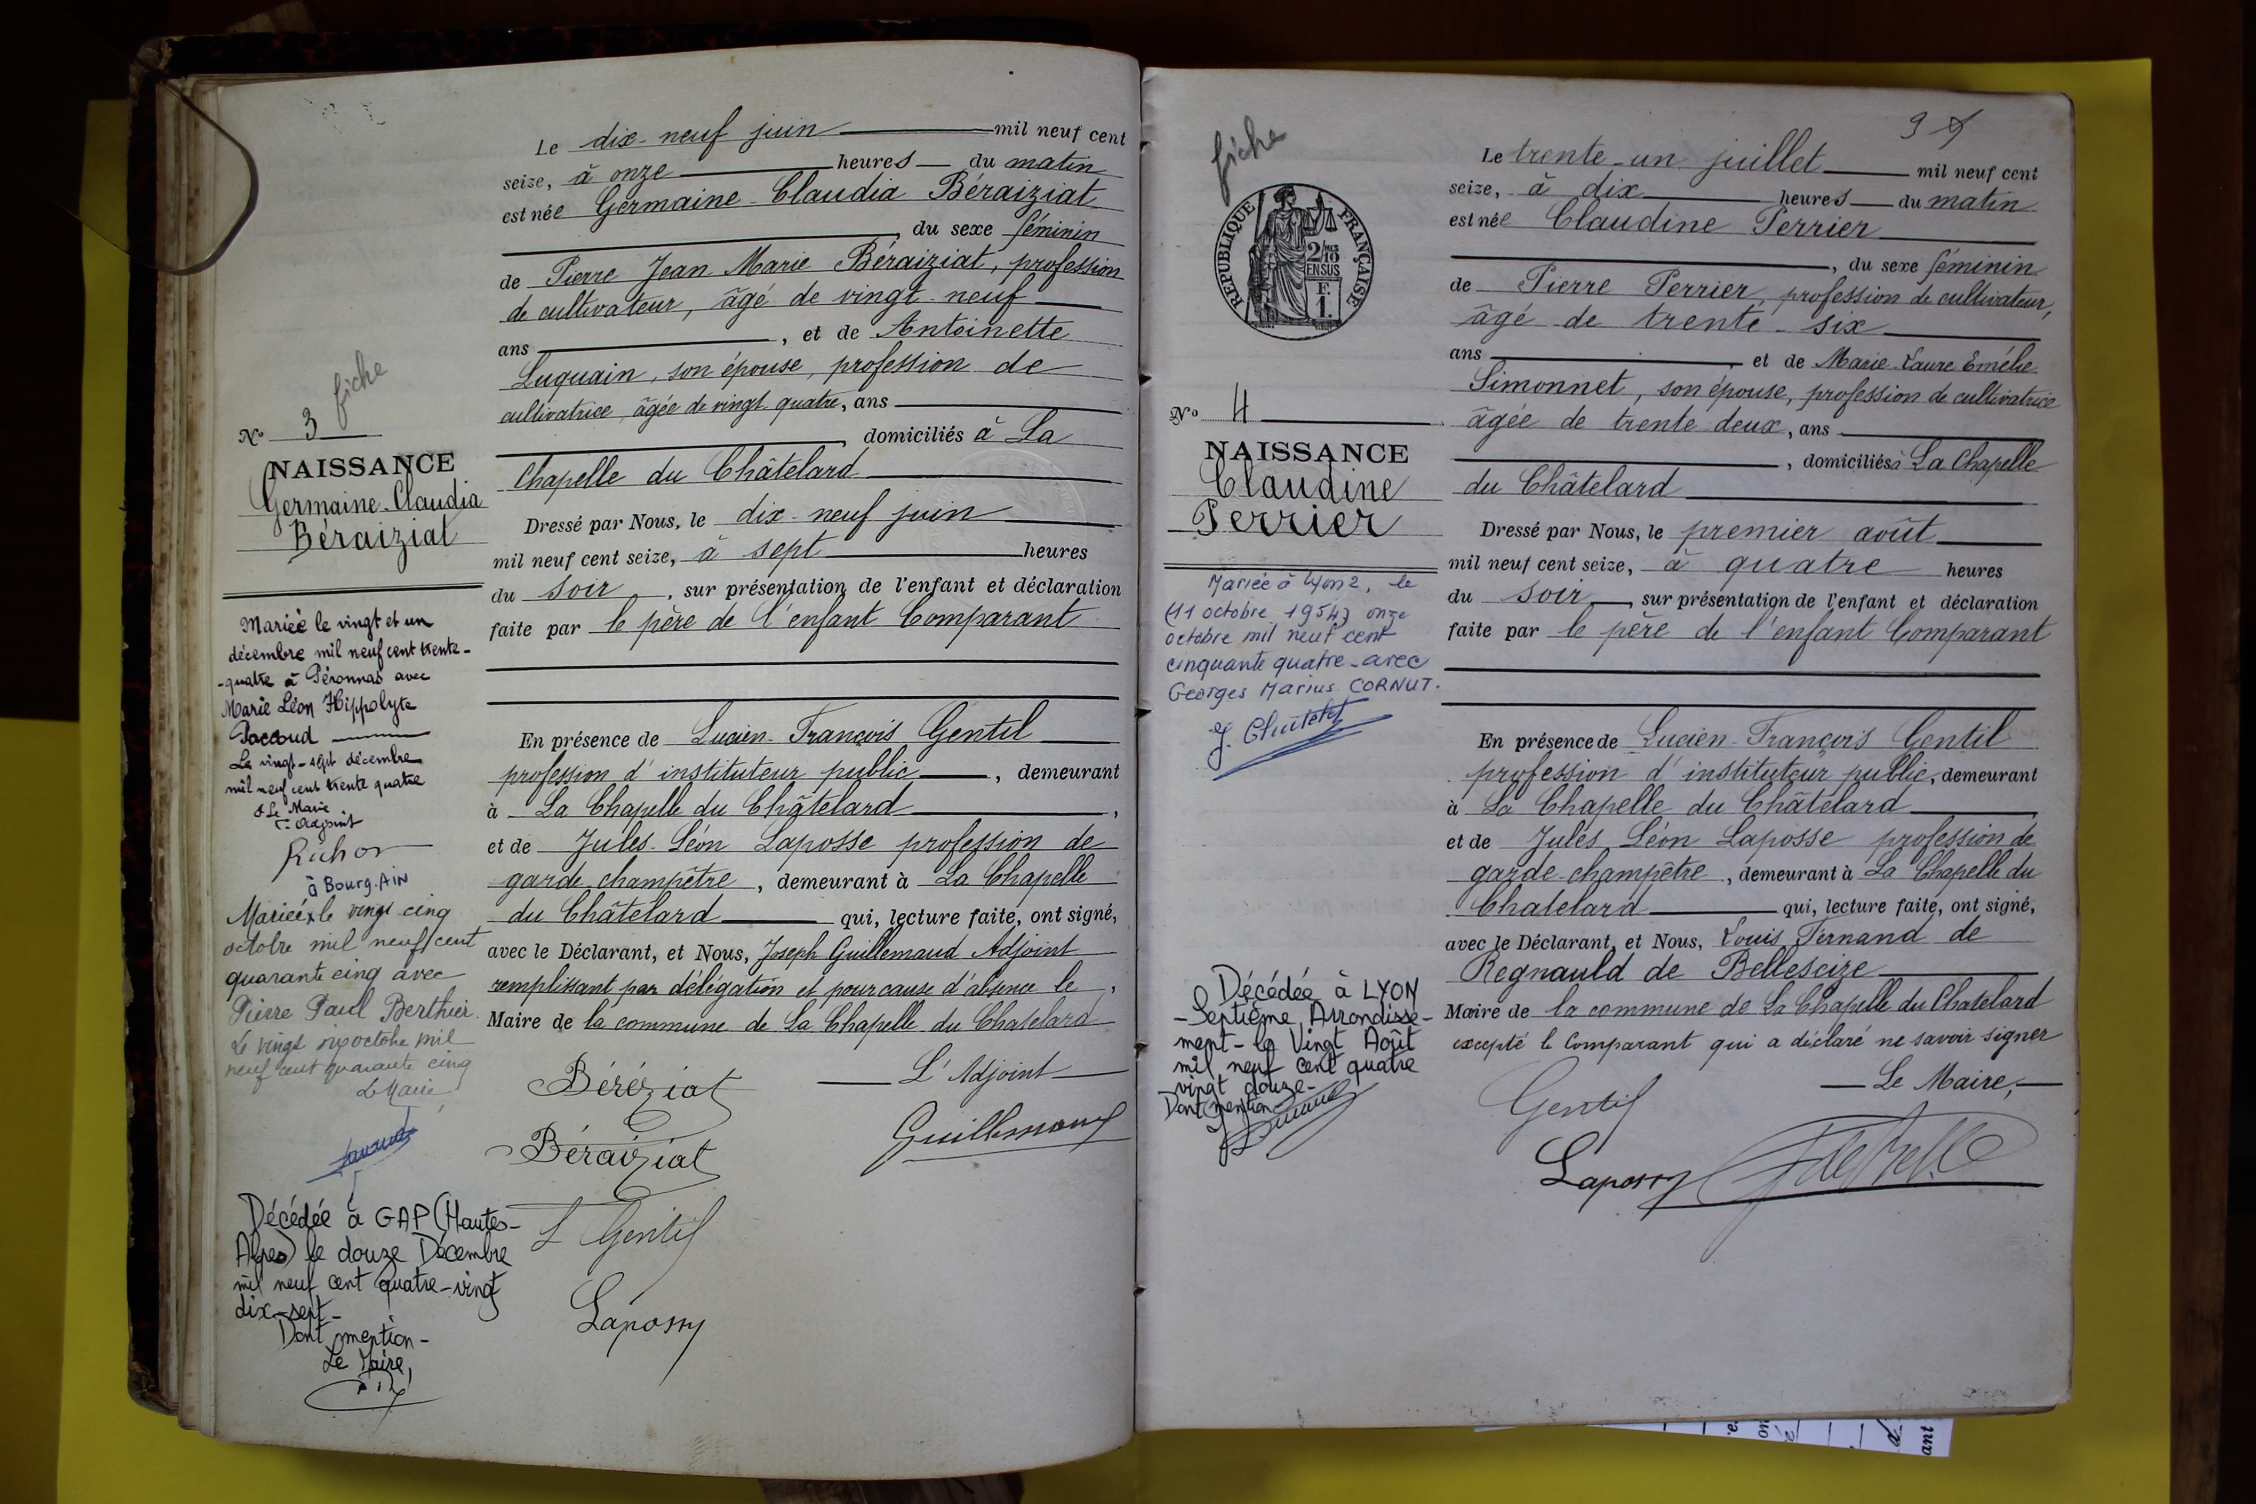 fiche
N° 3
NAISSANCE
Germaine-Claudia
Béraiziat
Mariée le vingt et un
décembre mil neuf cent trente-
-quatre à Péronnas avec
Marie Léon Hippolyte
Paccoud
Le vingt-sept décembre
mil neuf cent trente quatre
Le Maire
Adjoint
à Bourg.AIN
Mariée le vingt cinq
octobre mil neuf cent
quarante cinq avec
Pierre Paul Berthier.
Le vingt six octobre mil
neuf cent quarante cinq
Le Maire
Décédée à GAP (Hautes-
Alpes) le douze Décembre
mil neuf cent quatre-vingt
dix-sept-
Dont mention-
Le Maire,
Le dix-neuf juin mil neuf cent
seize, à onze heures du matin
est née Germaine-Claudia Béraiziat
, du sexe féminin
de Pierre Jean Marie Béraiziat, profession
de cultivateur, âgé de vingt-neuf
ans , et de Antoinette
Luquain, son épouse, profession de
cultivatrice, âgée de vingt quatre, ans
, domiciliés à La
Chapelle du Châtelard
Dressé par Nous, le dix-neuf juin
mil neuf cent seize, à sept heures
du soir , sur présentation de l'enfant et déclaration
faite par le père de l'enfant Comparant
En présence de Lucien-François Gentil
profession d'instituteur public , demeurant
à La Chapelle du Châtelard ,
et de Jules-Léon Laposse profession de
garde champêtre , demeurant à La Chapelle
du Châtelard qui, lecture faite, ont signé,
avec le Déclarant, et Nous, Joseph Guillemaud Adjoint
remplissant par délégation et pour cause d'absence le ,
Maire de la commune de La Chapelle du Chatelard
L'Adjoint
Béréziat
Guillemaud
Béraiziat
L Gentil
Laposse
9
fiche
REPUBLIQUE FRANÇAISE
2/10
EN SUS
F.
1.
N° 4
NAISSANCE
Claudine
Perrier
Mariée à Lyon 2, le
(11 octobre 1954) onze
octobre mil neuf cent
cinquante quatre-avec
Georges Marius CORNUT.
Décédée à LYON
-Septième Arrondisse-
ment-le Vingt Août
mil neuf cent quatre
-vingt douze-
Dont mention-
Le trente-un juillet mil neuf cent
seize, à dix heures du matin
est née Claudine Perrier
, du sexe féminin
de Pierre Perrier, profession de cultivateur,
âgé de trente-six
ans et de Marie-Laure Emélie
Simonnet, son épouse, profession de cultivatrice
âgée de trente deux, ans
, domiciliés à La Chapelle
du Châtelard
Dressé par Nous, le premier août
mil neuf cent seize, à quatre heures
du soir , sur présentation de l'enfant et déclaration
faite par le père de l'enfant Comparant
En présence de Lucien-François Gentil
profession d'instituteur public, demeurant
à La Chapelle du Châtelard ,
et de Jules Léon Laposse profession de
garde-champêtre , demeurant à La Chapelle du
Chatelard qui, lecture faite, ont signé,
avec le Déclarant, et Nous, Louis Fernand de
Regnauld de Bellescize
Maire de la commune de La Chapelle du Chatelard
excepté le Comparant qui a déclaré ne savoir signer
Le Maire,
Gentil
Laposse